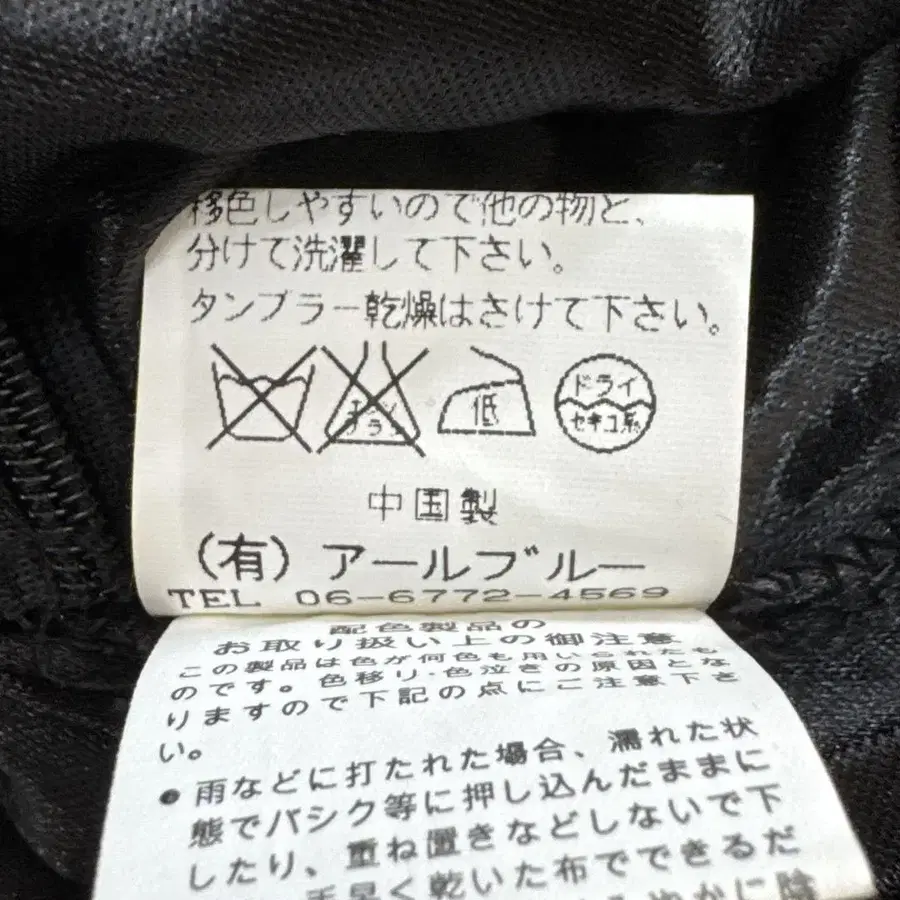 移色しやすいので他の物と、
分けて洗濯して下さい。
タンブラー乾燥はさけて下さい。
エンソ
サラシ
低
ドライ
セキユ系
中国製
(有) アールブルー
TEL 06-6772-4569
配色製品の
お取り扱い上の御注意
この製品は色が何色も用いられたも
のです。色移り・色泣きの原因とな
りますので下記の点にご注意下さ
い。
● 雨などに打たれた場合、濡れた状
態でバシク等に押し込んだままに
したり、重ね置きなどしないで下
手早く乾いた布でできるだ
やかに陰